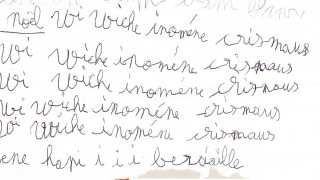 noël Wi Wiche inoméne crismaus
Wi Wiche inoméne crismaus
Wi Wiche inoméne crismaus
Wi Wiche inoméne crismaus
Wi Wiche inoméne crismaus
ene hapi i i i